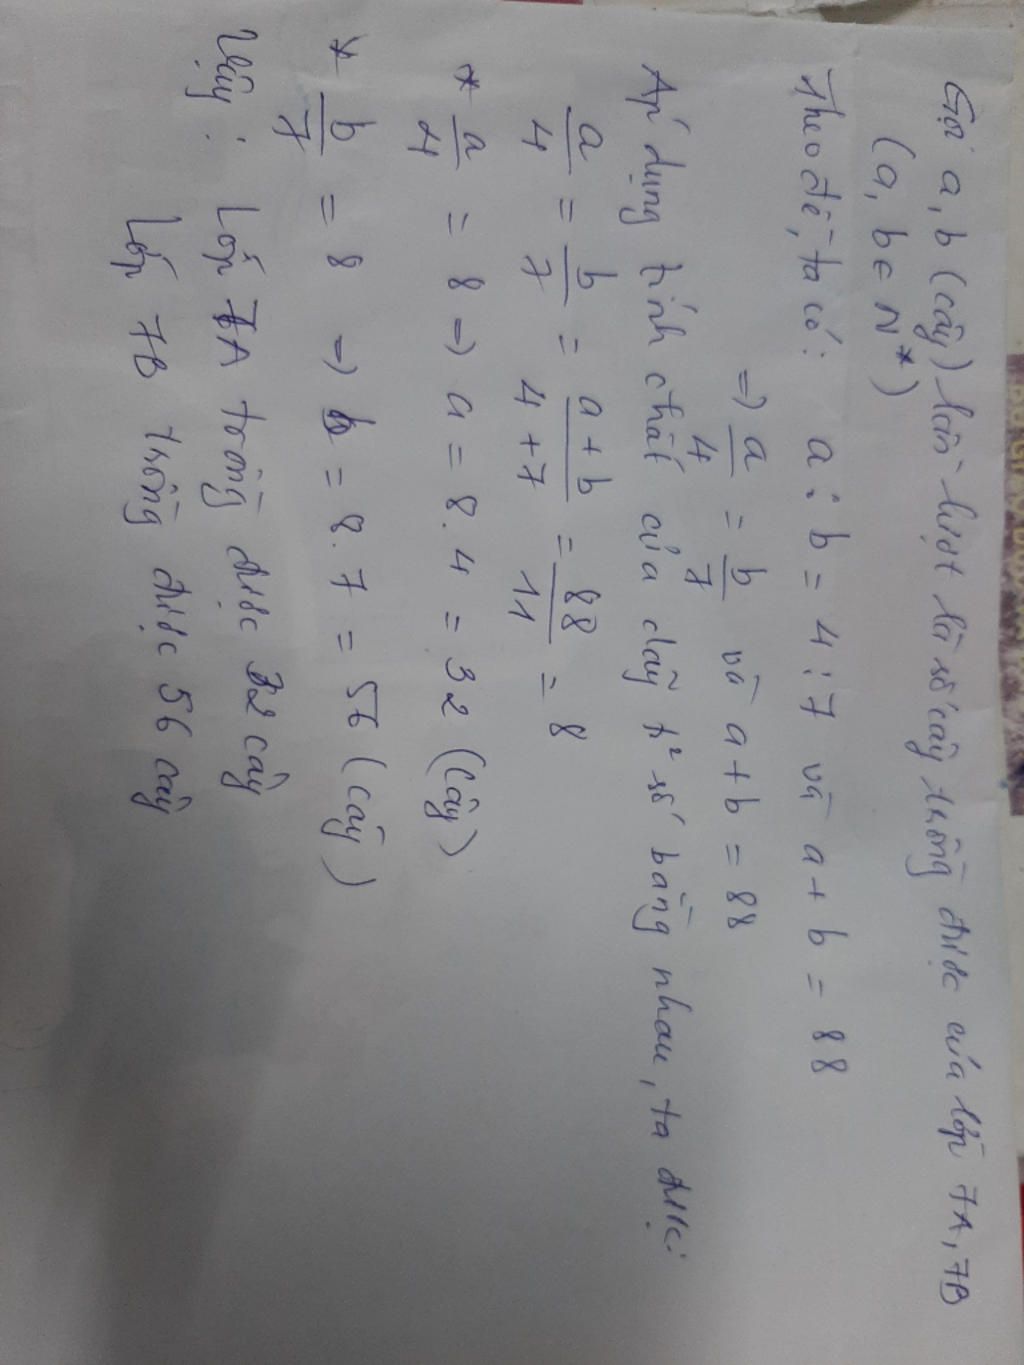 Gọi a, b (cây) lần lượt là số cây trồng được của lớp 7A, 7B
(a, b ∈ N*)
Theo đề, ta có: a : b = 4 : 7 và a + b = 88
=> a/4 = b/7 và a + b = 88
Áp dụng tính chất của dãy tỉ số bằng nhau, ta được:
a/4 = b/7 = a + b/4 + 7 = 88/11 = 8
* a/4 = 8 => a = 8.4 = 32 (cây)
* b/7 = 8 => b = 8.7 = 56 (cây)
Vậy: Lớp 7A trồng được 32 cây
Lớp 7B trồng được 56 cây